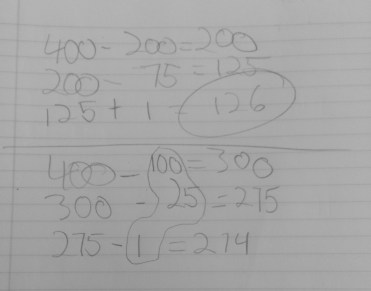 400 - 200 = 200
200 - 75 = 125
125 + 1 = 126
400 - 100 = 300
300 - 25 = 275
275 - 1 = 274